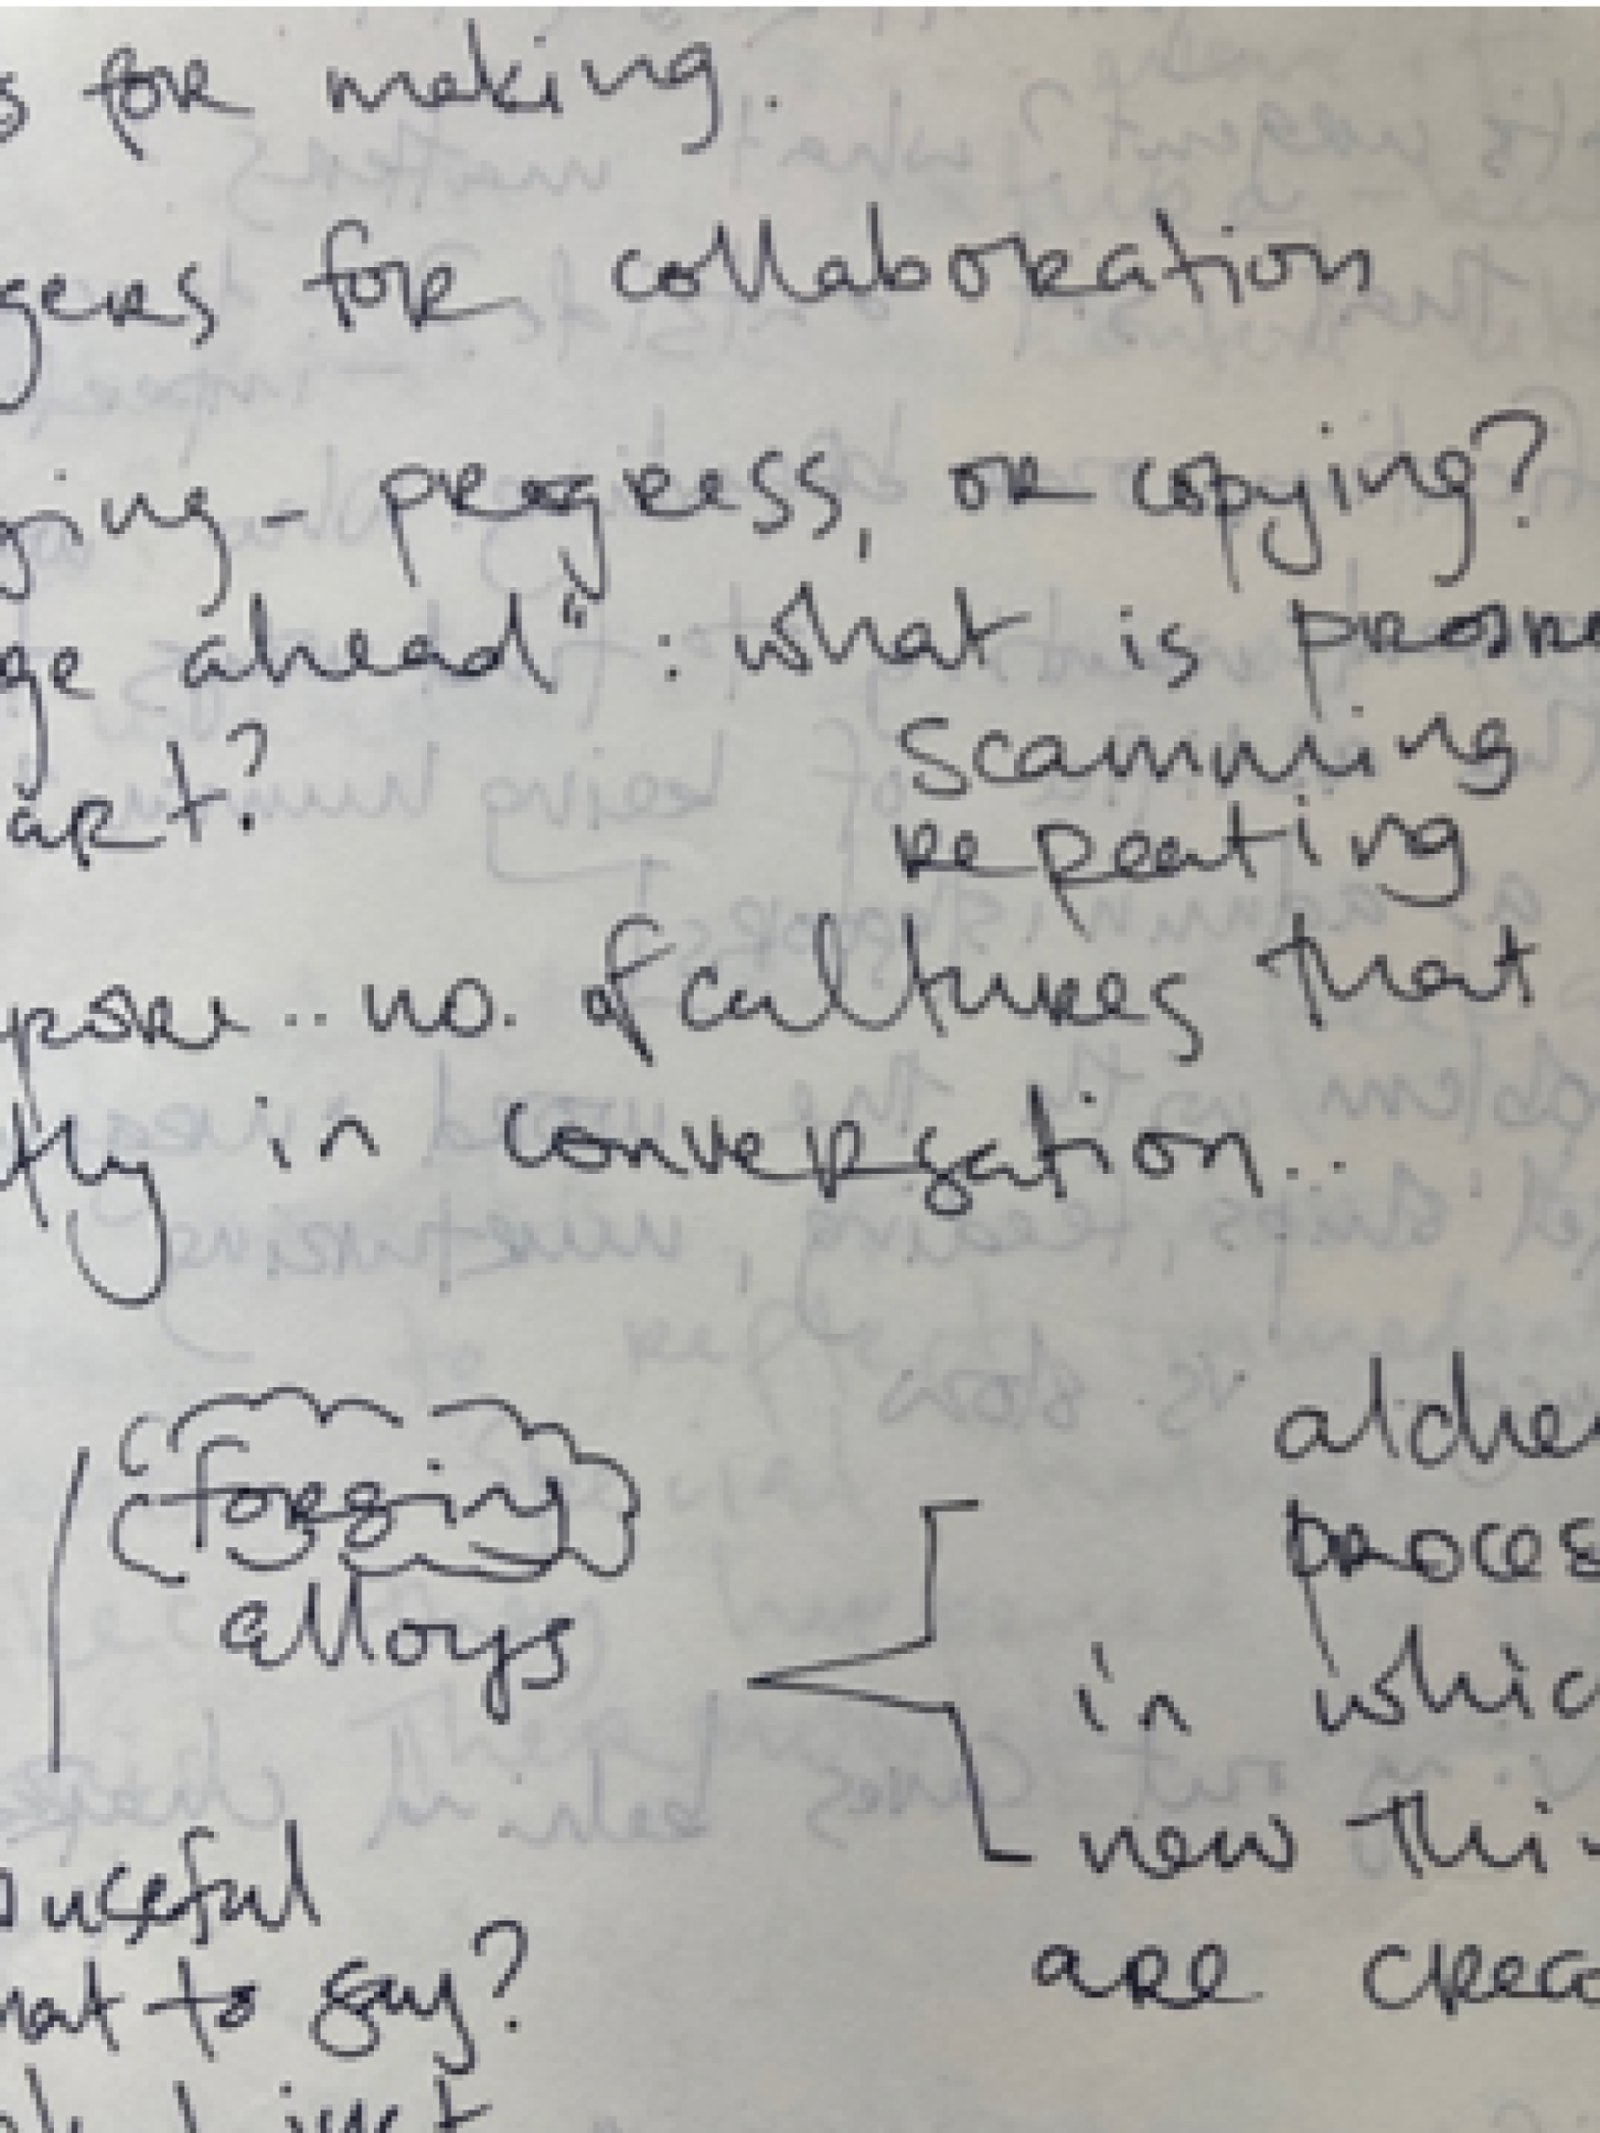 s for making.
gers for collaboration
ging - progress, or copying?
ge ahead" : what is
scamming
art?
repeating
no. of cultures that
tly in conversation..
alche
forging
proces
alloys
in which
new thi
useful
are crea
hat to say?
just